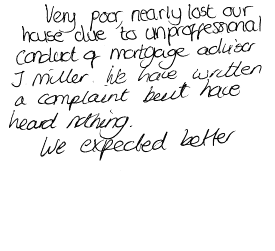 Very poor, nearly lost our
house due to unproffessional
conduct of mortgage advisor
J Miller. We have written
a complaint beut have
heard nothing.
We expected better